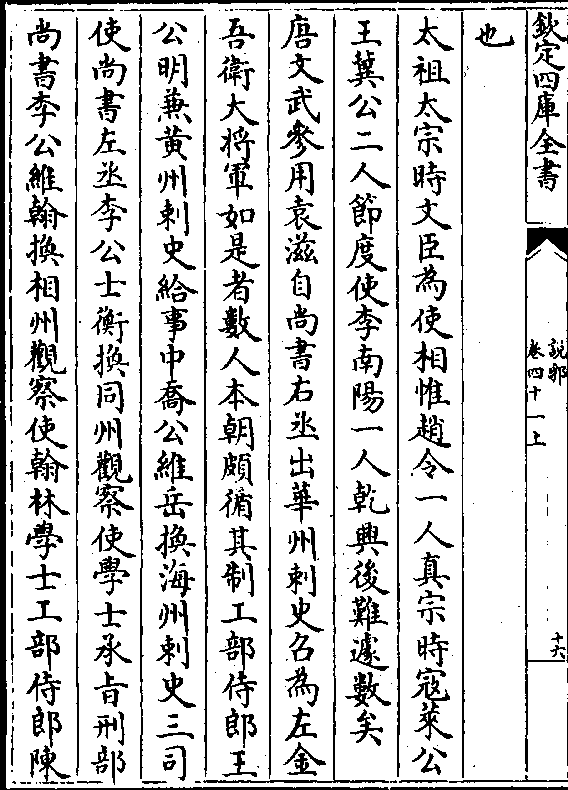 欽定四庫全書
說郛
卷四十一上
十六
也
太祖太宗時文臣為使相惟趙令一人真宗時寇萊公
王冀公二人節度使李南陽一人乾興後難遽數矣
唐文武參用袁滋自尚書右丞出華州刺史召為左金
吾衛大将軍如是者數人本朝頗循其制工部侍郎王
公明兼黃州刺史給事中喬公維岳換海州刺史三司
使尚書左丞李公士衡換同州觀察使學士承旨刑部
尚書李公維翰換相州觀察使翰林學士工部侍郎陳